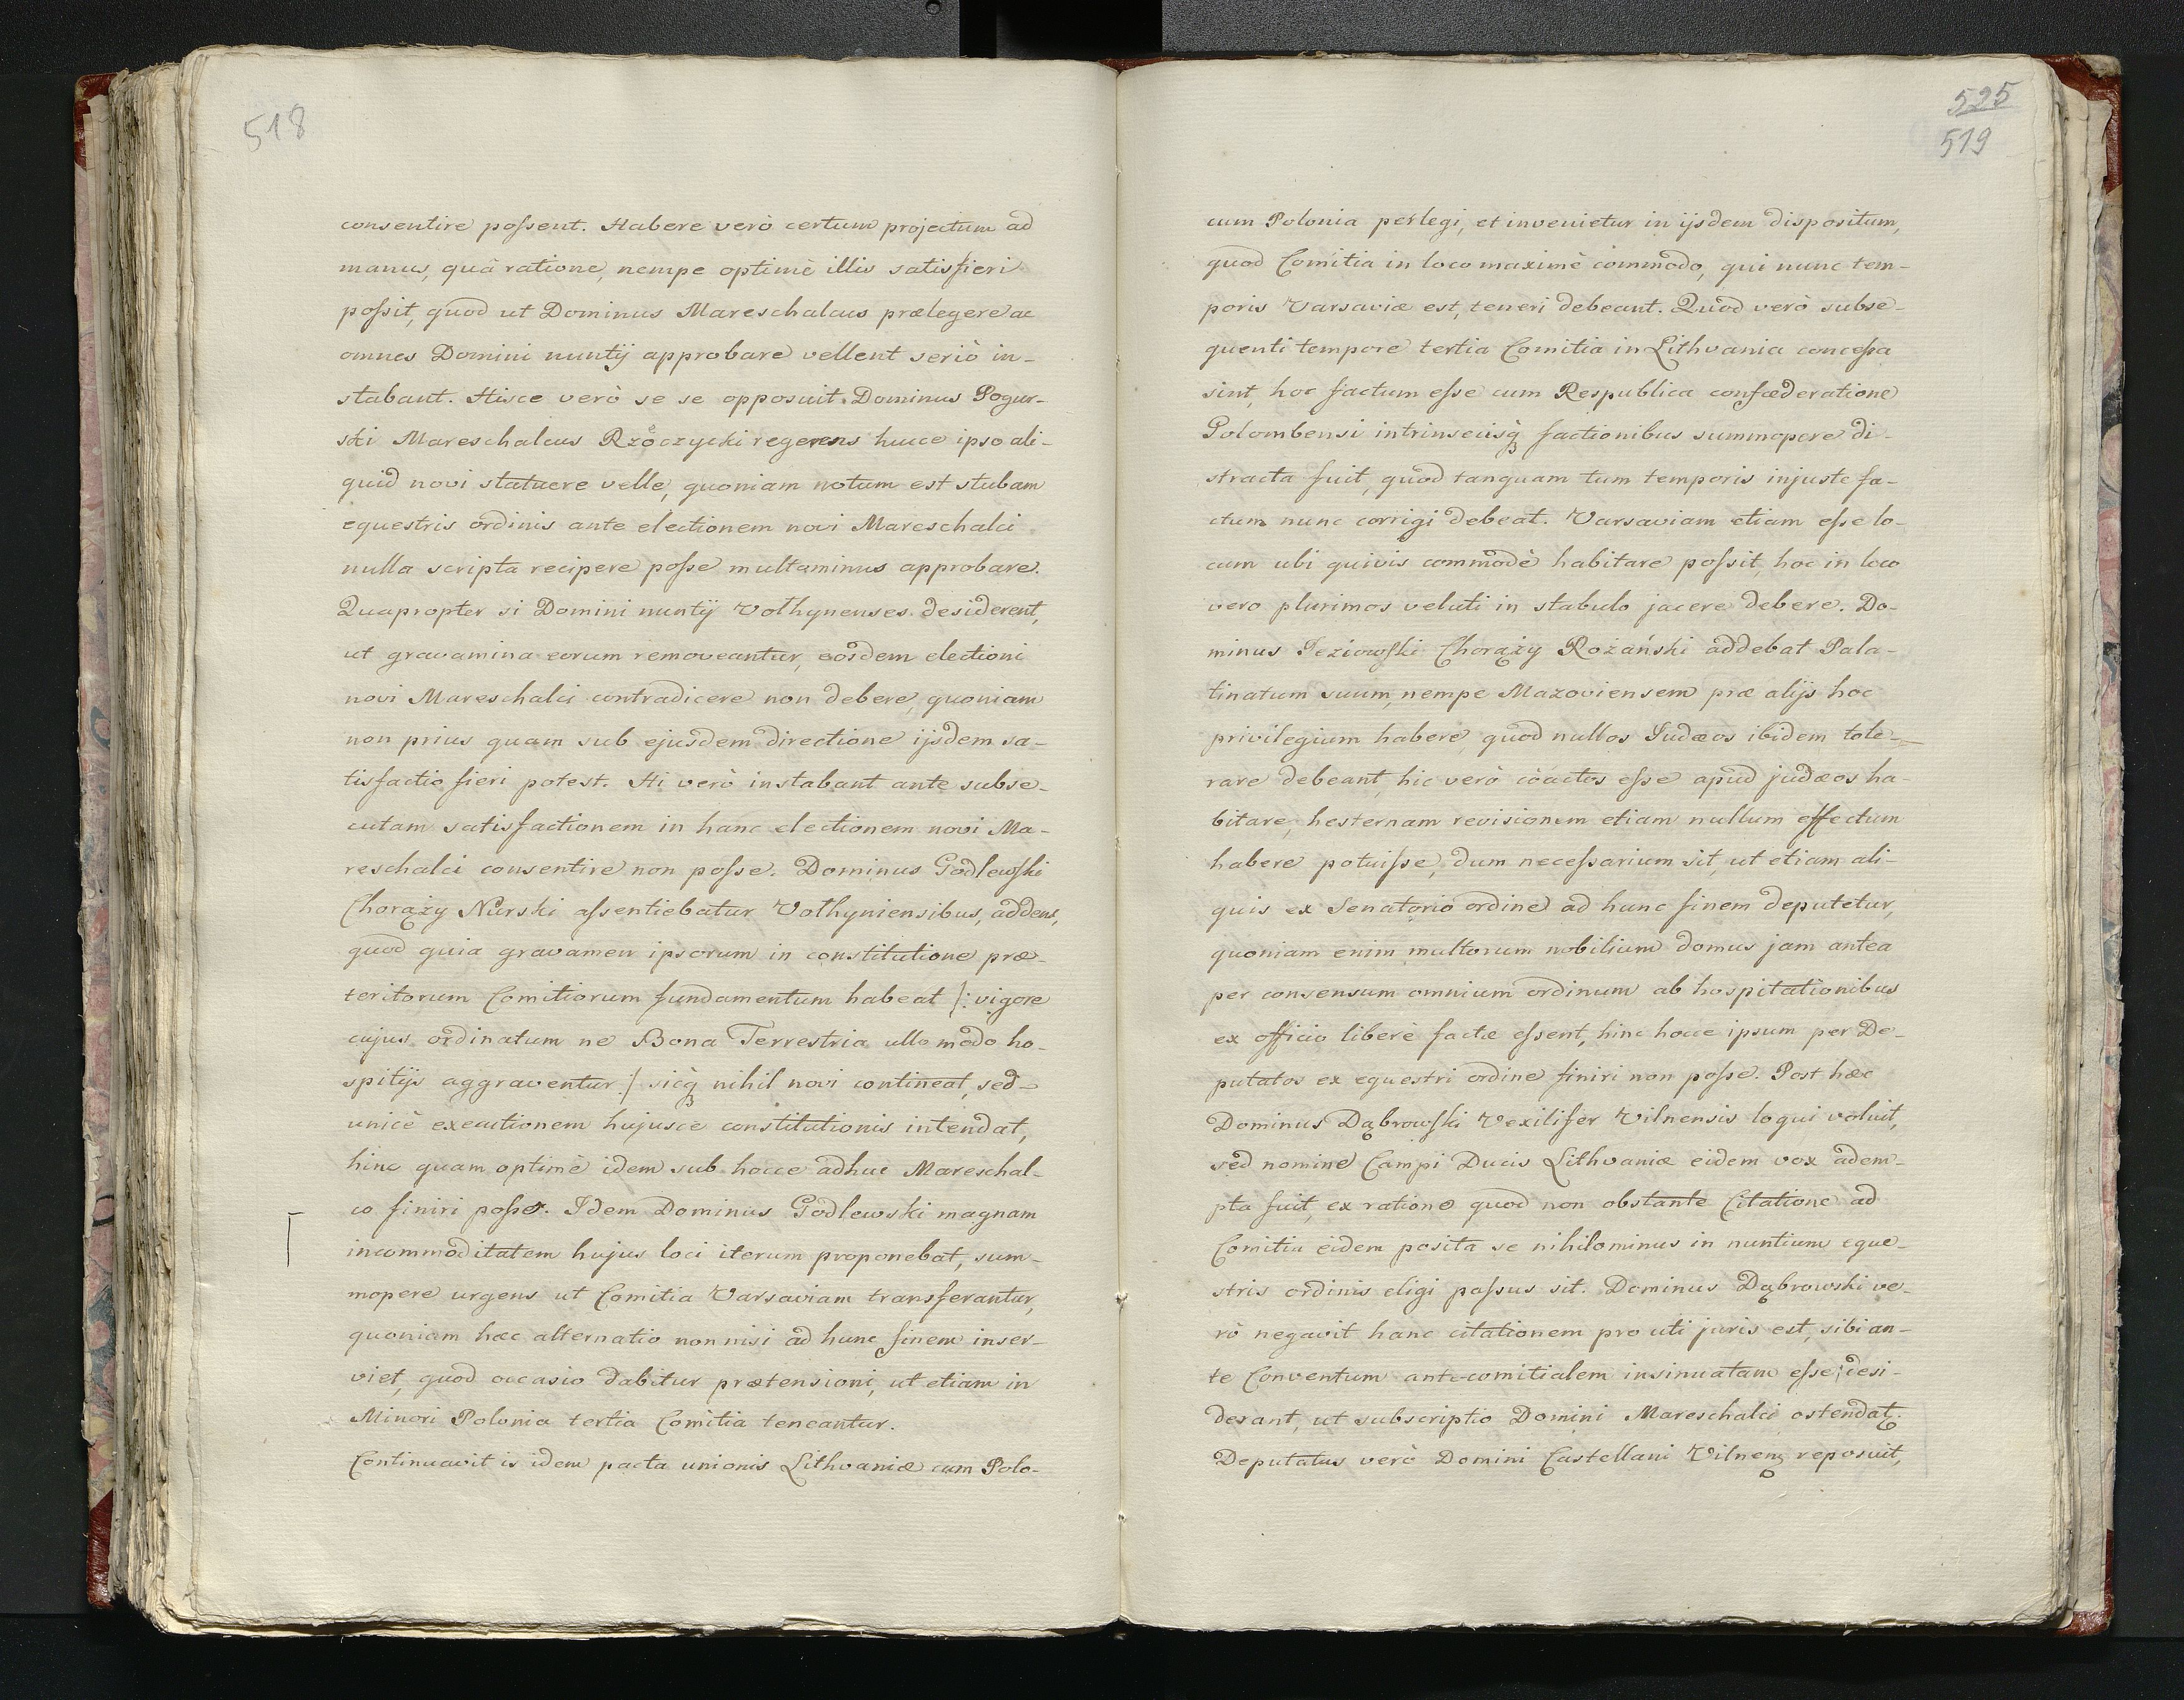 518
consentire possent. Habere verò certum projectum ad
manus, quâ ratione, nempe optimè illis satisfieri
possit, quod ut Dominus Mareschalcus prælegere ac
omnes Domini nuntÿ approbare vellent seriò in-
stabant. Hisce verò se se opposuit Dominus Pogur-
ski Mareschalcus Rzeczycki regerens hucce ipso ali-
quid novi statuere velle, quoniam notum est stubam
equestris ordinis ante electionem novi Mareschalci
nulla scripta recipere posse multaminus approbare.
Quapropter si Domini nuntÿ Volhynenses desiderent,
ut gravamina eorum removeantur, eosdem electioni
novi Mareschalci contradicere non debere, quoniam
non prius quam sub ejusdem directione ijsdem sa-
tisfactio fieri potest. Hi verò instabant ante subse-
cutam satisfactionem in hanc electionem novi Ma-
reschalci consentire non posse. Dominus Godlewski
Chorąży Nurski assentiebatur Volhyniensibus, addens,
quod quia gravamen ipsorum in constitutione præ-
teritorum Comitiorum fundamentum habeat /: vigore
cujus ordinatum ne Bona Terrestria ullo modo ho-
spitijs aggraventur :/ sicq; nihil novi contineat, sed
unicè executionem hujusce constitutionis intendat,
hinc quam optimè idem sub hocce adhuc Mareschal-
co finiri posse. Idem Dominus Godlewski magnam
incommoditatem hujus loci iterum proponebat, sum-
mopere urgens ut Comitia Varsaviam transferantur,
quoniam hæc alternatio non nisi ad hunc finem inser-
viet, quod occasio dabitur prætensioni, ut etiam in
Minori Polonia tertia Comitia teneantur.
Continuavit is idem pacta unionis Lithvaniæ cum Polo-
525
519
cum Polonia perlegi, et invenietur in ijsdem dispositum,
quod Comitia in loco maximè commodo, qui nunc tem-
poris Varsaviæ est, teneri debeant. Quod verò subse-
quenti tempore tertia Comitia in Lithvania concessa
sint, hoc factum esse cum Respublica confæderatione
Golombensi intrinsecisq; factionibus summopere di-
stracta fuit, quod tanquam tum temporis injuste fa-
ctum nunc corrigi debeat. Varsaviam etiam esse lo-
cum ubi quivis commodè habitare possit, hoc in loco
vero plurimos veluti in stabulo jacere debere. Do-
minus Jeziowski Chorąży Rożański addebat Pala-
tinatum suum, nempe Mazoviensem præ alijs hoc
privilegium habere, quod nullos Judæos ibidem tole-
rare debeant, hic verò coactos esse apud judæos ha-
bitare, hesternam revisionem etiam nullum effectum
habere potuisse, dum necessarium sit, ut etiam ali-
quis ex Senatorio ordine ad hunc finem deputetur,
quoniam enim multorum nobilium domus jam antea
per consensum omnium ordinum ab hospitationibus
ex officio liberè factæ essent, hinc hocce ipsum per De-
putatos ex equestri ordine finiri non posse. Post hæc
Dominus Dąbrowski Vexilifer Vilnensis loqui voluit,
sed nomine Campi Ducis Lithvaniæ eidem vox adem-
pta fuit, ex ratione quod non obstante Citatione ad
Comitia eidem posita se nihilominus in nuntium eque-
stris ordinis eligi passus sit. Dominus Dąbrowski ve-
rò negavit hanc citationem pro uti juris est, sibi an-
te Conventum ante-comitialem insinuatam esse; desi-
derant, ut subscriptio Domini Mareschalci ostendat.
Deputatus verò Domini Castellani Vilnen; reposuit,